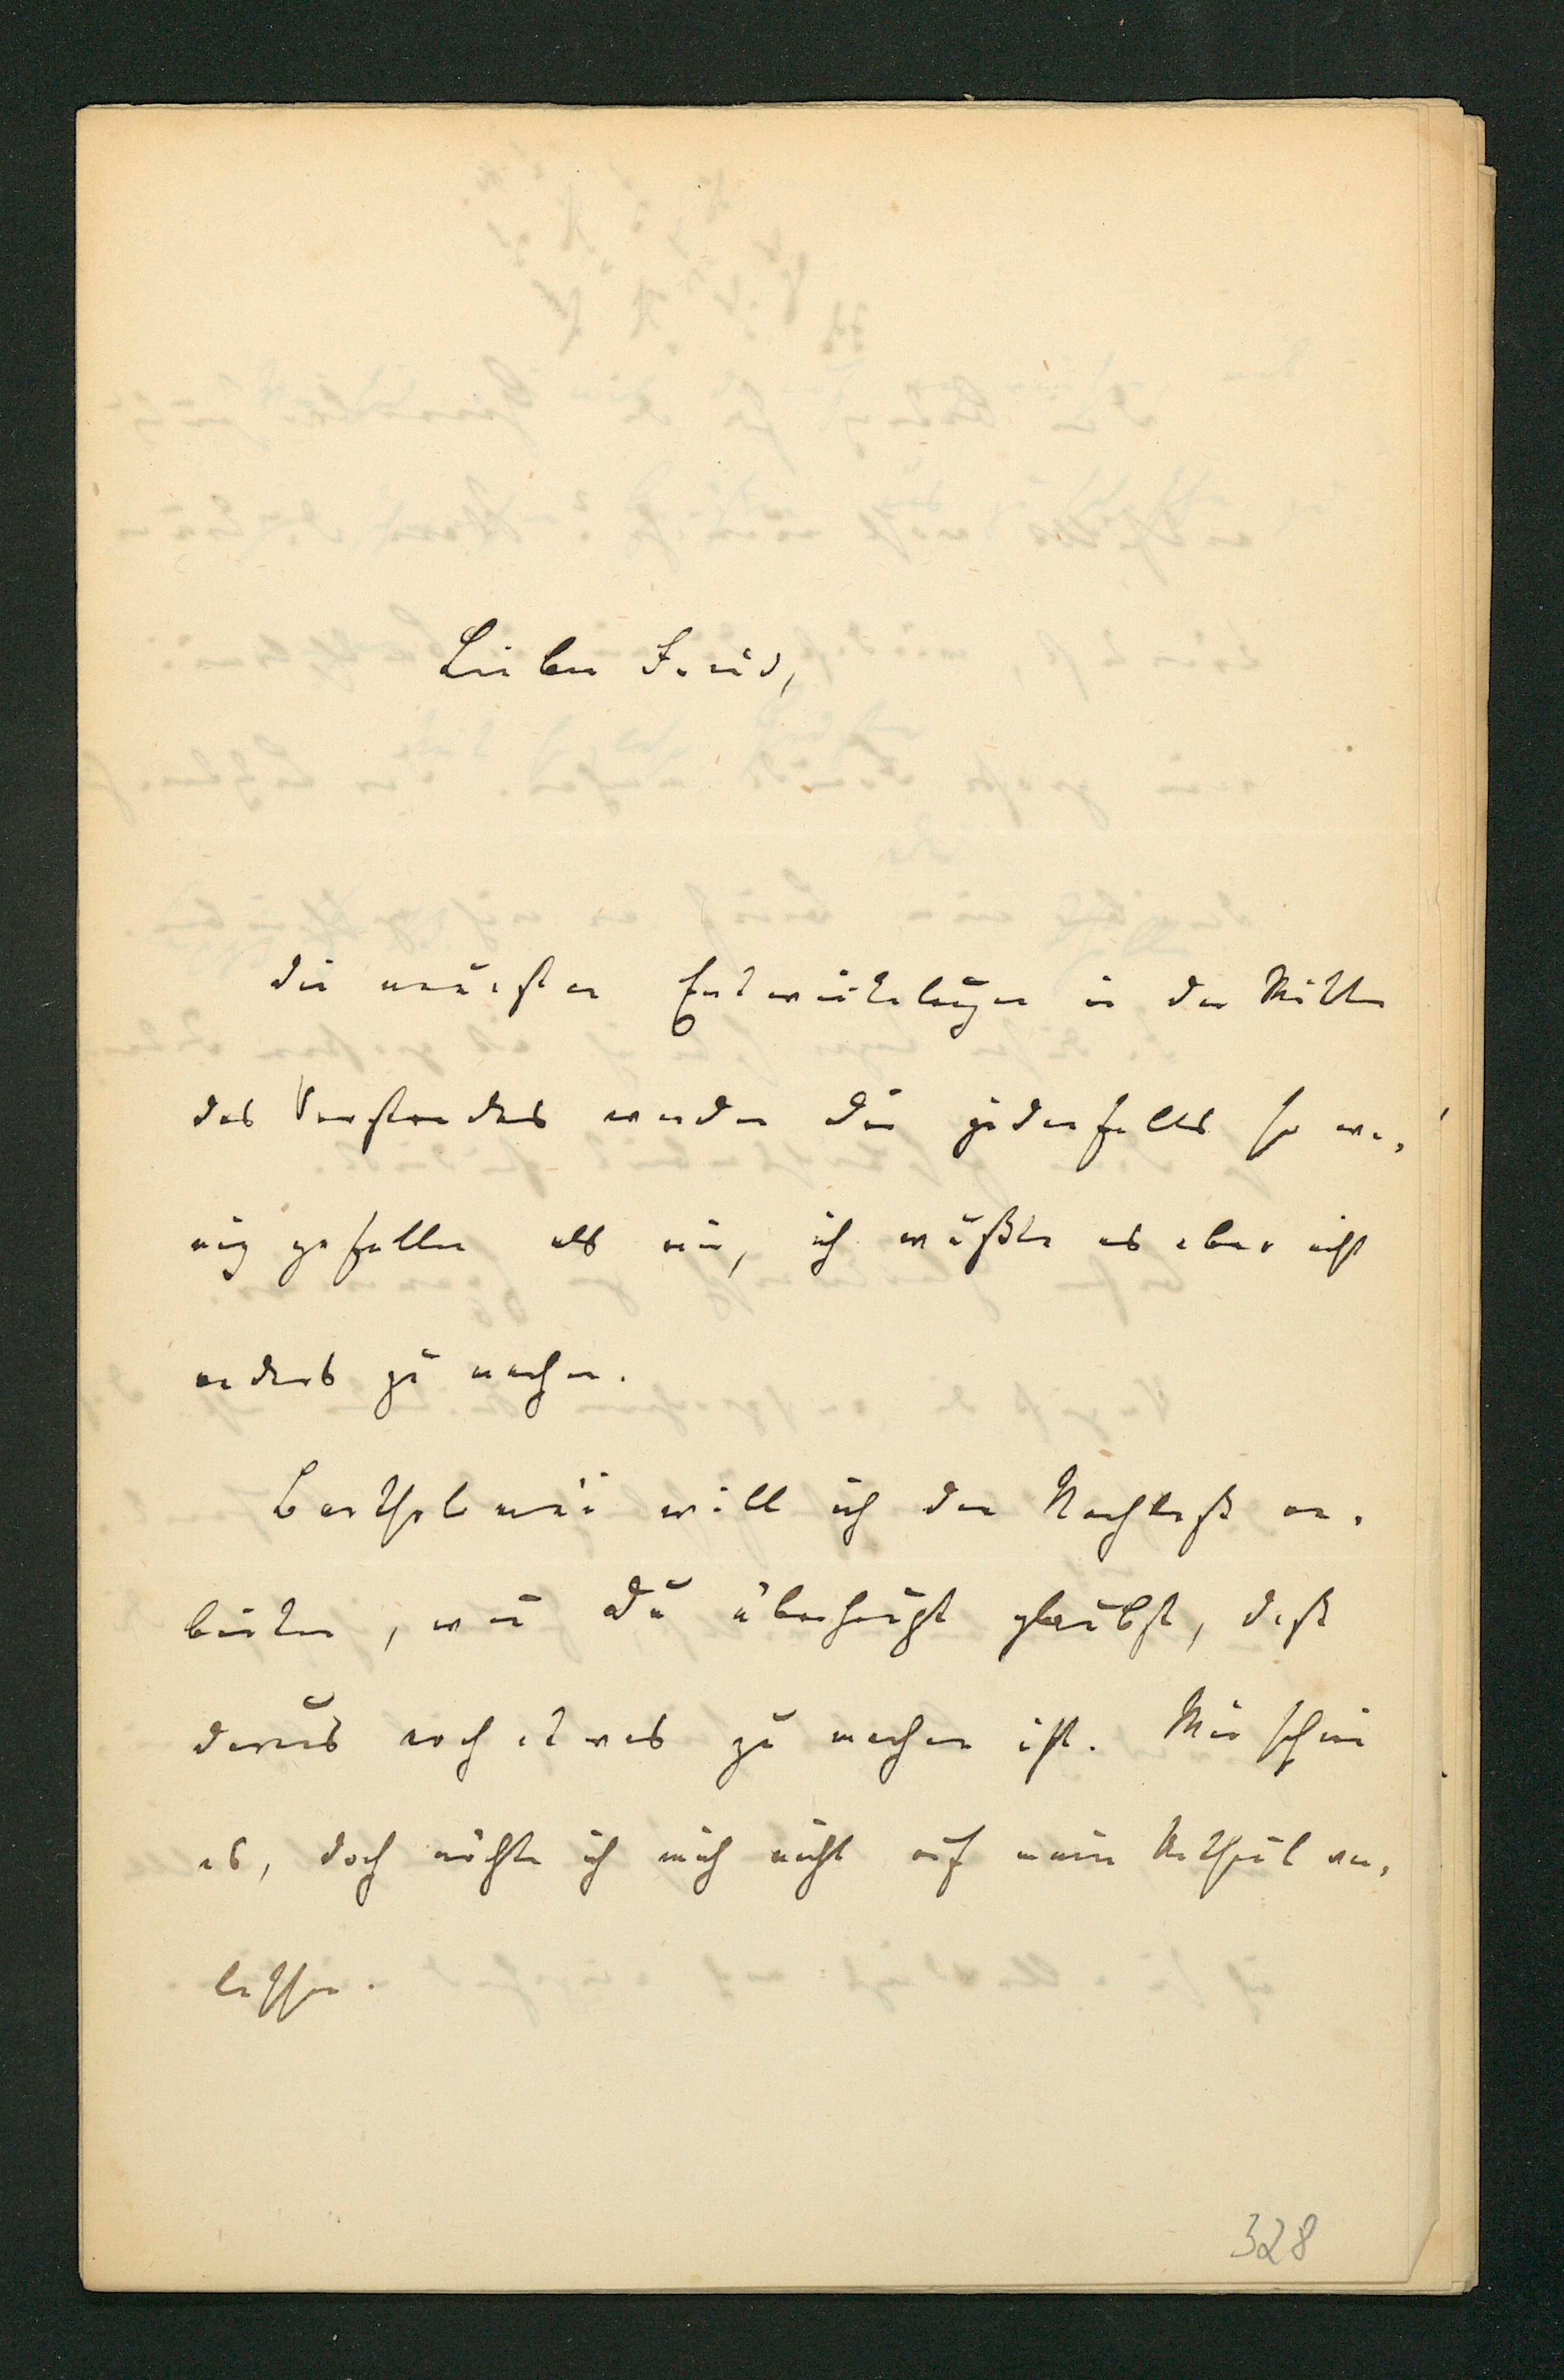 Lieber Freud,
die neuesten Entwickelungen in der Mitte
des Vorstandes werden dir jedenfalls so we-
nig gefallen als mir, ich wüßte es aber nicht
anders zu machen.
Bartholomäi will ich den Nachlaß an-
bieten, wenn Du überhaupt glaubst, daß
daraus noch etwas zu machen ist. Mir schien
es, doch möchte ich mich nicht auf mein Urtheil ver-
lassen.
328